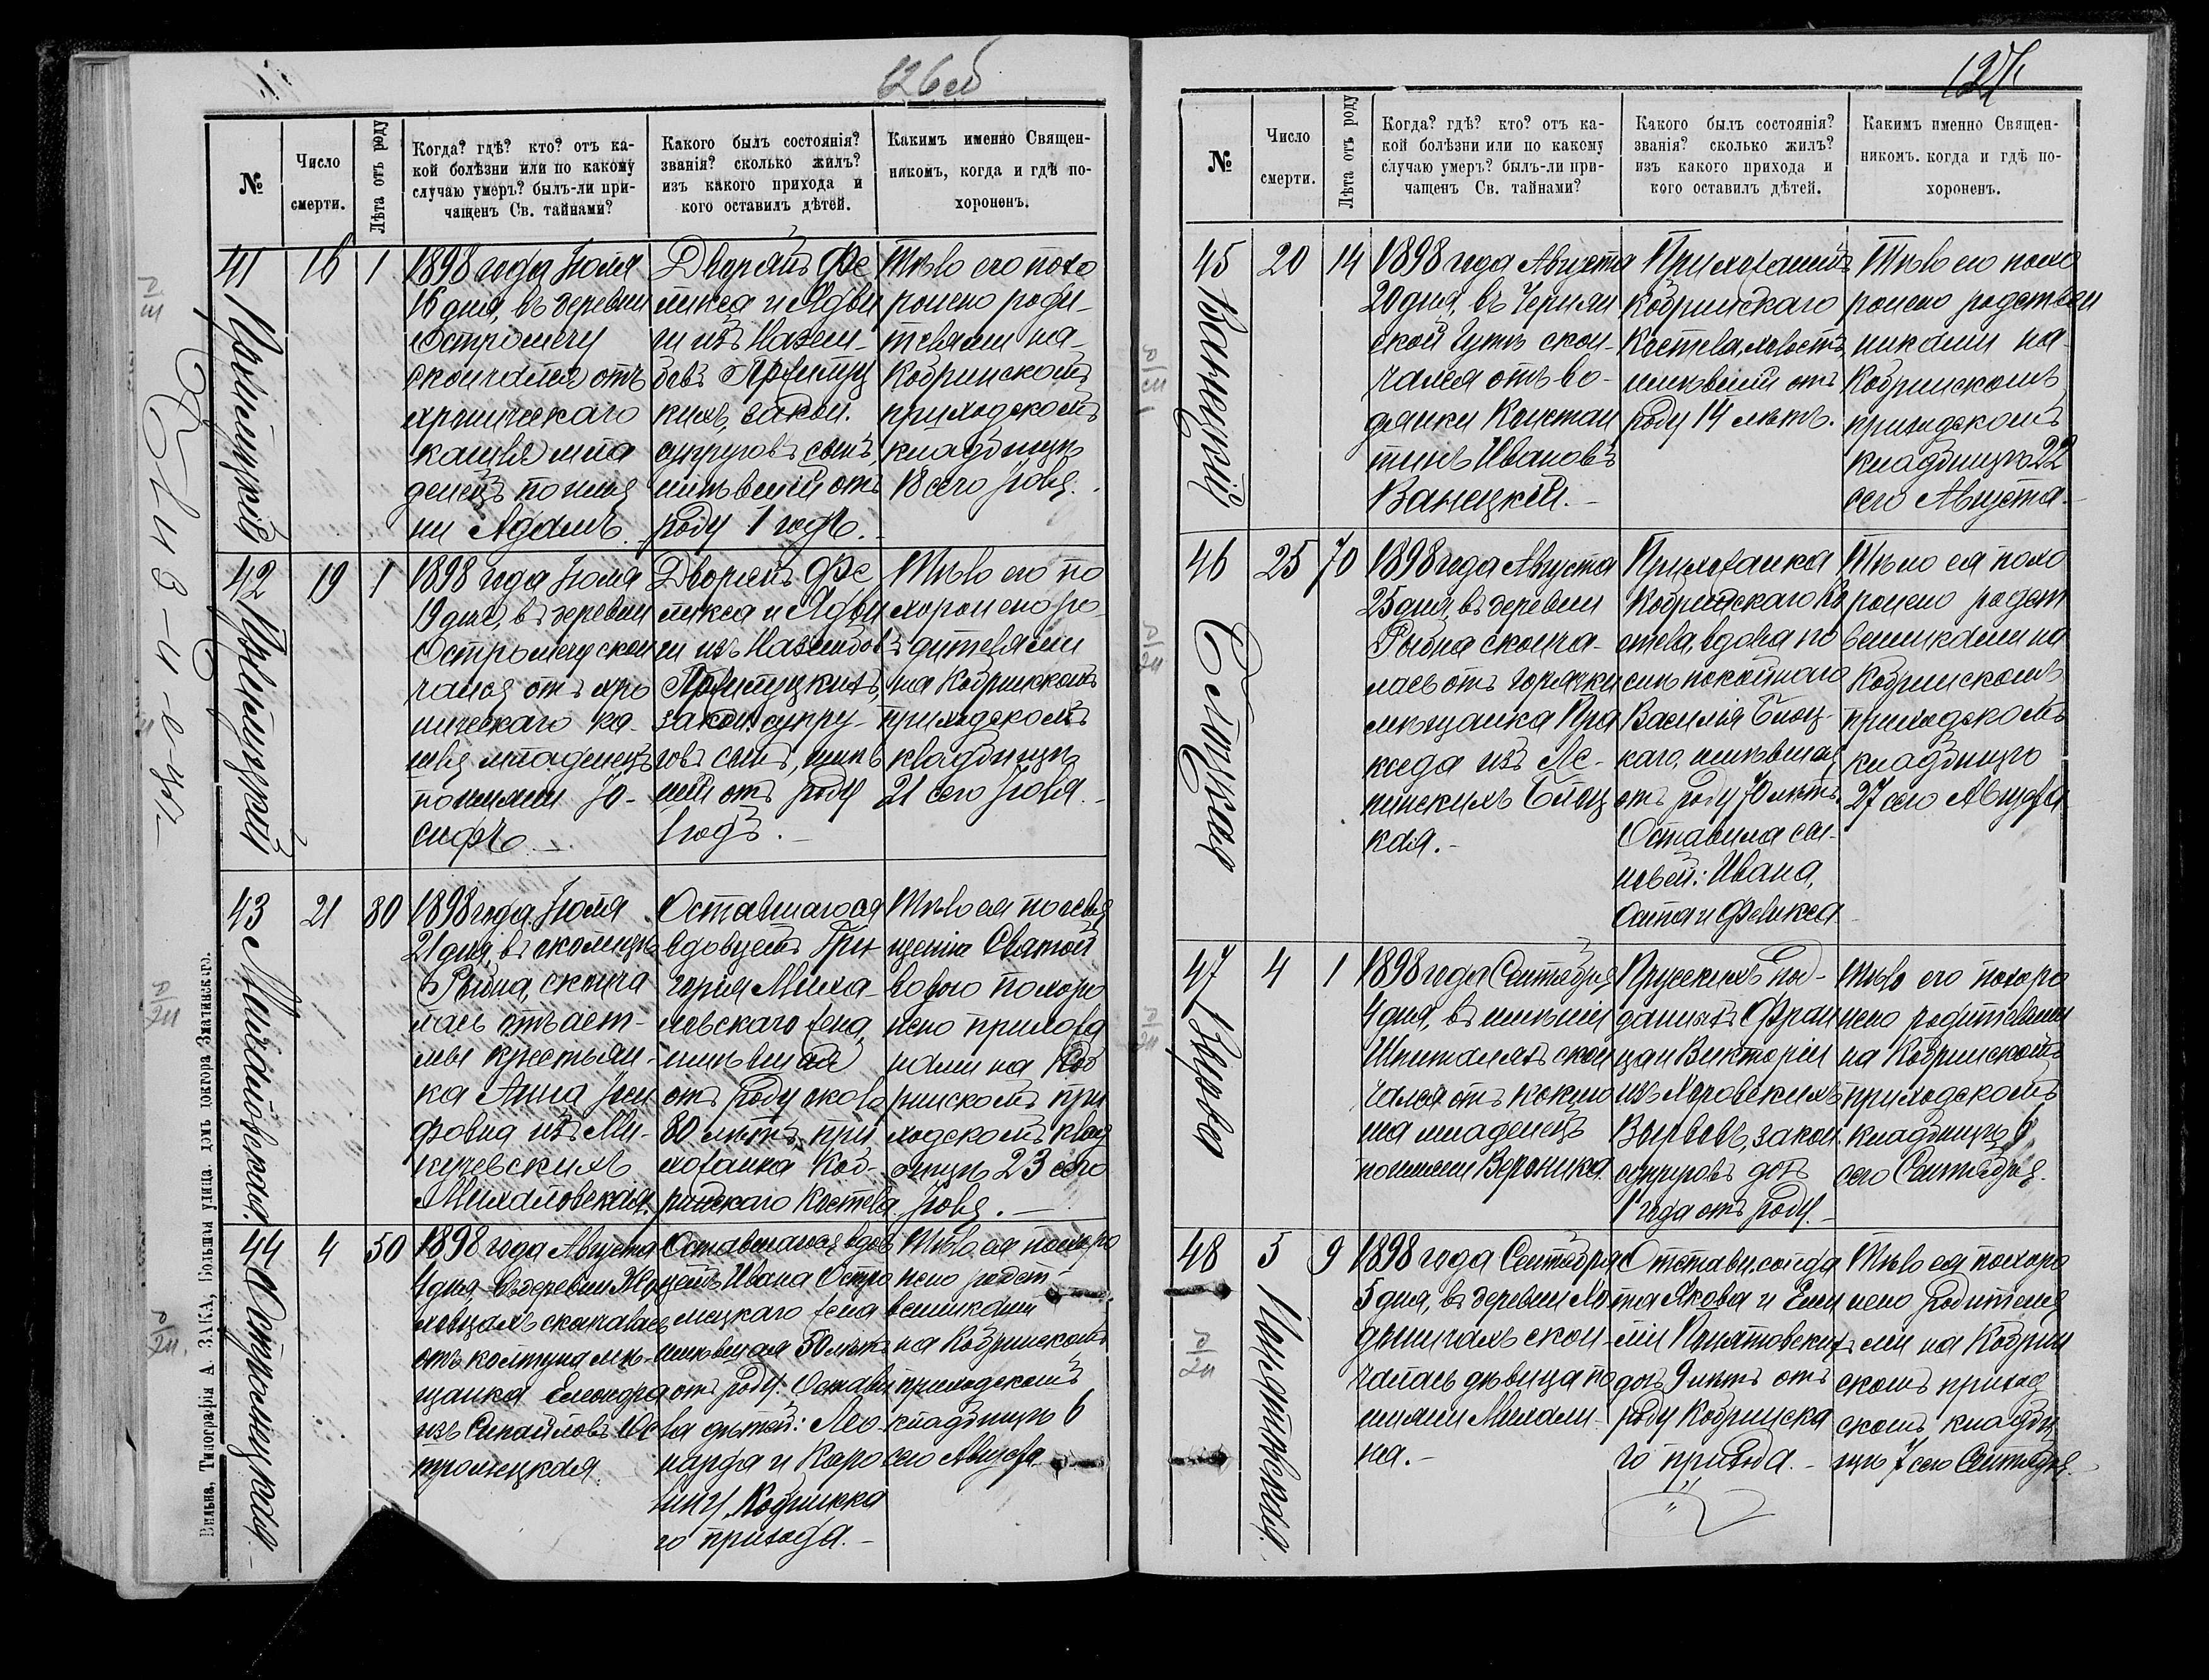 126 об
№
Число смерти.
Лѣта отъ роду
Когда? гдѣ? кто? отъ ка-
кой болѣзни или по какому
случаю умеръ? былъ-ли при-
чащенъ Св. тайнами?
Какого былъ состоянія?
званія? сколько жилъ?
изъ какого прихода и
кого оставилъ дѣтей.
Какимъ именно Священ-
никомъ, когда и гдѣ по-
хороненъ.
41
16
1
1898 года Іюля
16 дня, въ деревни
Остромечу
скончался отъ
хроническаго
кашля мла
денецъ по имя
ни Адамъ.
Дворянъ Фе
ликса и Ядви
ги изъ
закон.
супруговъ сынъ,
имѣвшій отъ
роду 1 годъ.
Тѣло его похо
ронено роди-
телями на
Кобринскомъ
приходскомъ
кладбищѣ
18 сего Іюля.
42
19
1
1898 года Іюля
19 дня, въ деревни
Остромечу скон
чался отъ хро
ническаго ка-
шля младенецъ
по имяни Іо-
сифъ.
Дворянъ Фе
ликса и Ядви
ги изъ
закон. супру-
говъ сынъ, имѣв
шій отъ роду
1 годъ.
Тѣло его по
хоронено ро-
дителями
на Кобринскомъ
приходскомъ
кладбищѣ
21 сего Іюля.
43
Михаловская.
21
80
1898 года Іюля
21 дня, въ околицѣ
Рыбна, сконча
лась отъ аст-
мы крестьян-
ка Анна Іоси
фовна изъ Ми-
куческихъ
Михаловская.
Оставшагося
вдовцемъ Гри
горія Миха-
ловскаго жена,
имѣвшая
отъ роду около
80 лѣтъ, при
хожанка Коб-
ринскаго Костела.
Тѣло ея
Святой
водою похоро
нено прихожа
нами на Коб
ринскомъ при
ходскомъ клад
бищѣ 23 сего
Іюля.
44
Остромецкая.
4
50
1898 года Августа
4 дня въ деревни
скончалась
отъ колтуна мѣ-
щанка Елеонора
изъ Ос
тромецкая.
Оставшагося вдов
цемъ Ивана Остро
мецкаго жена
имѣвшая 50 лѣтъ
отъ роду. Остави
ла дѣтей: Лео-
нарда и Каро
лину, Кобринска
го прихода.
Тѣло ея похоро
нено родст-
венниками
на Кобринскомъ
приходскомъ
кладбищѣ 6
сего Августа
Вильна, Типографія А. ЗАКА, Большая улица, домъ доктора Зматинскаго.
127
№
Число смерти.
Лѣта отъ роду
Когда? гдѣ? кто? отъ ка-
кой болѣзни или по какому
случаю умеръ? былъ-ли при-
чащенъ Св. тайнами?
Какого былъ состоянія?
званія? сколько жилъ?
изъ какого прихода и
кого оставилъ дѣтей.
Какимъ именно Священ-
никомъ. когда и гдѣ по-
хороненъ.
45
Ванецкій
20
14
1898 года Августа
20 дня, въ Чернян
ской Гутѣ скон-
чался отъ во-
дянки Констан
тинъ Ивановъ
Ванецкій.
Прихожанинъ
Кобринскаго
Костела, холостъ,
имѣвшій отъ
роду 14 лѣтъ.
Тѣло его похо
ронено родствен
никами на
Кобринскомъ
приходскомъ
кладбищѣ 22
сего Августа
46
Блоцкая
25
70
1898 года Августа
25 дня, въ деревни
Рыбна сконча-
лась отъ горячки
мѣщанка Пра
кседа изъ
Блоц
кая.
Прихожанка
Кобринскаго Ко
стела, вдова по
сіи покойнаго
Василія Блоц-
каго, имѣвшая
отъ роду 70 лѣтъ.
Оставила сы-
новей: Ивана,
Осипа и Феликса
Тѣло ея похо
ронено родст
венниками на
Кобринскомъ
приходскомъ
кладбищѣ
27 сего Августа
47
4
1
1898 года Сентября
4 дня, въ имѣніи
Шпиталяхъ скон
чался отъ коклю
ша младенецъ
по имени Вероника.
Прусскихъ под-
данныхъ Фран
ца и Викторіи
изъ
закон.
супруговъ дочь
1 года отъ роду.
Тѣло его похоро
нено родителями
на Кобринскомъ
приходскомъ
кладбищѣ 6
сего Сентября.
48
Понятовская.
5
9
1898 года Сентября
5 дня, въ деревни
скон
чалась дѣвица по
имяни Михали-
на.
Отставн. солда
та Якова и Еми
ліи Понятовскихъ
дочь 9 лѣтъ отъ
роду Кобринска
го прихода.
Тѣло ея похоро
нено родителя
ми на Кобрин
скомъ приход
скомъ кладби
щѣ 7 сего Сентября.